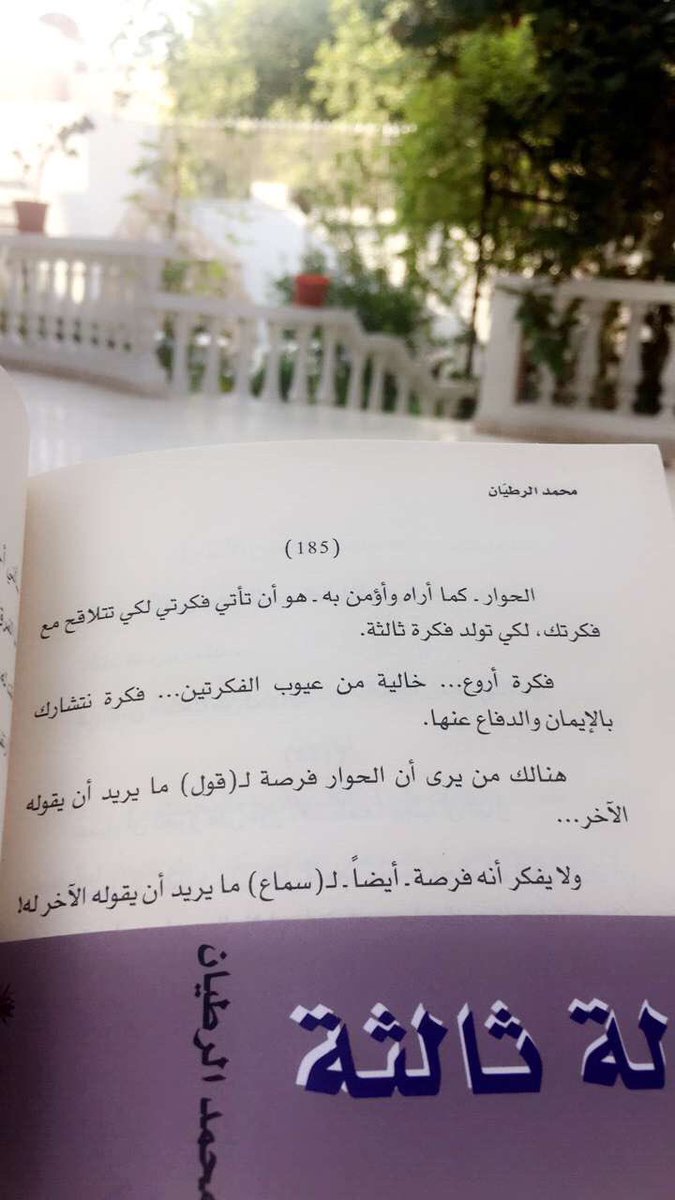 محمد الرطيّان
(185)
الحوار ـ كما أراه وأؤمن به ـ هو أن تأتي فكرتي لكي تتلاقح مع
فكرتك، لكي تولد فكرة ثالثة.
فكرة أروع... خالية من عيوب الفكرتين... فكرة نتشارك
بالإيمان والدفاع عنها.
هنالك من يرى أن الحوار فرصة لـ(قول) ما يريد أن يقوله
الآخر...
ولا يفكر أنه فرصة ـ أيضاً ـ لـ(سماع) ما يريد أن يقوله الآخر له!
لة ثالثة
محمد الرطيان